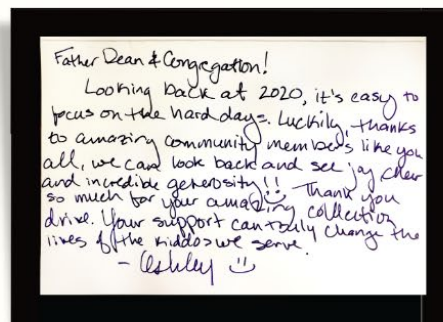 Father Dean & Congregation!
Looking back at 2020, it's easy to
focus on the hard days. Luckily, thanks
to amazing community members like you
all, we can look back and see joy, cheer
and incredible generosity!! Thank you
so much for your amazing collection
drive. Your support can truly change the
lives of the kiddos we serve.
- Ashley